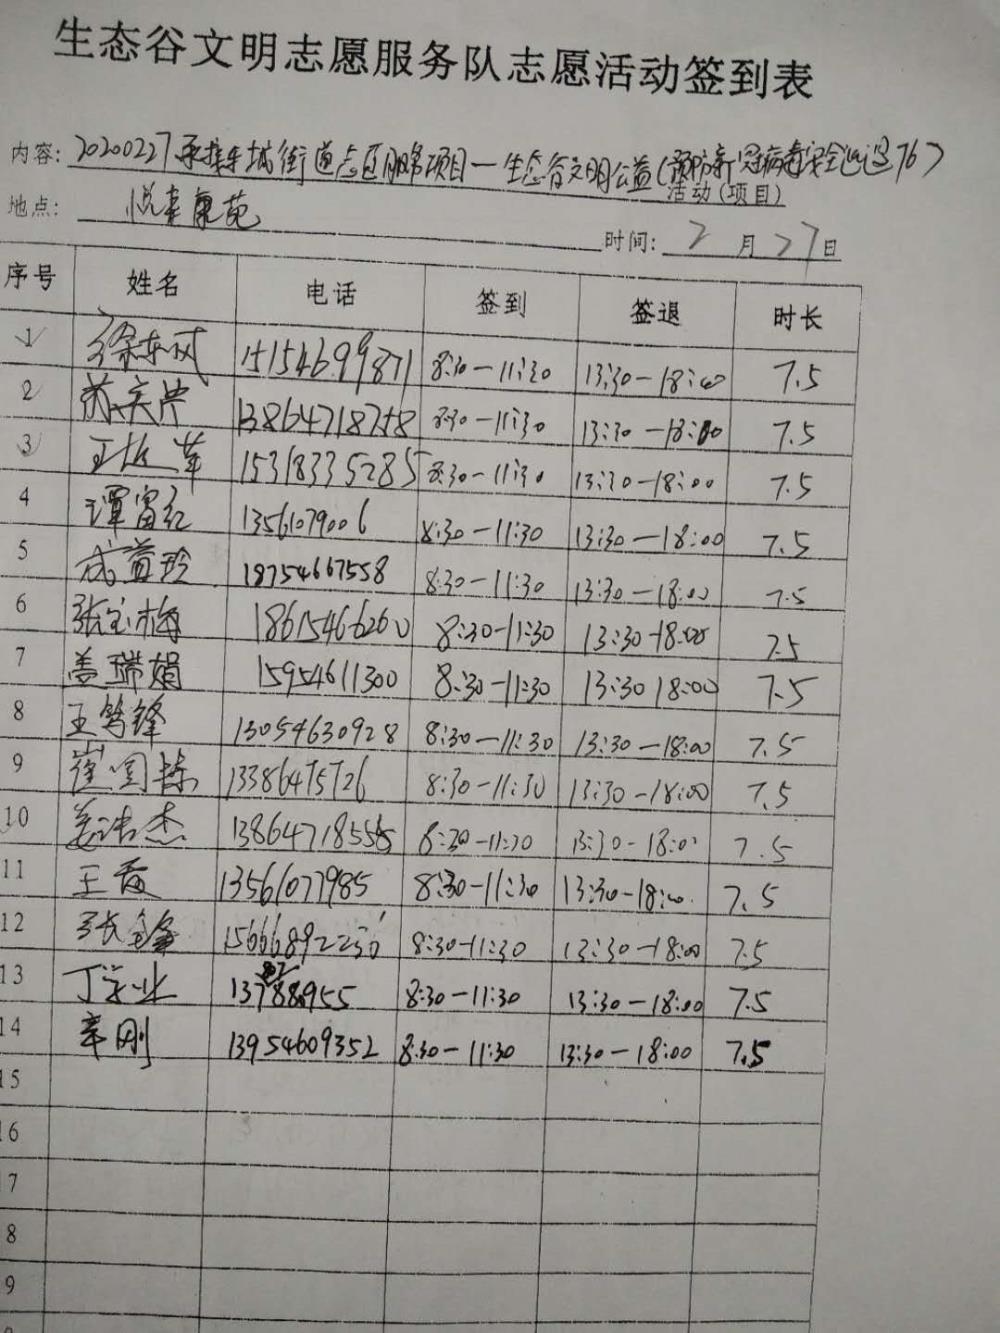 生态谷文明志愿服务队志愿活动签到表
内容: 20200227承接东城街道志愿服务项目—生态谷文明公益(预防新冠病毒安全 76)
活动(项目)
地点: 悦来康苑
时间: 2月27日
序号 姓名 电话 签到 签退 时长
1 徐东风 15154699871 8:30-11:30 13:30-18:00 7.5
2 13864718758 8:30-11:30 13:30-18:00 7.5
3 15318335285 8:30-11:30 13:30-18:00 7.5
4 谭富红 13561079006 8:30-11:30 13:30-18:00 7.5
5 成益玲 18754667558 8:30-11:30 13:30-18:00 7.5
6 张宝梅 18615466260 8:30-11:30 13:30-18:00 7.5
7 盖瑞娟 15954611300 8:30-11:30 13:30 18:00 7.5
8 王笃锋 13054630928 8:30-11:30 13:30-18:00 7.5
9 崔国栋 13386475726 8:30-11:30 13:30-18:00 7.5
10 姜洁杰 13864718556 8:30-11:30 13:30-18:00 7.5
11 王霞 13561077985 8:30-11:30 13:30-18:00 7.5
12 张金 8:30-11:30 13:30-18:00 7.5
13 丁学业 8:30-11:30 13:30-18:00 7.5
14 辛刚 13954609352 8:30-11:30 13:30-18:00 7.5
15
16
7
8
9